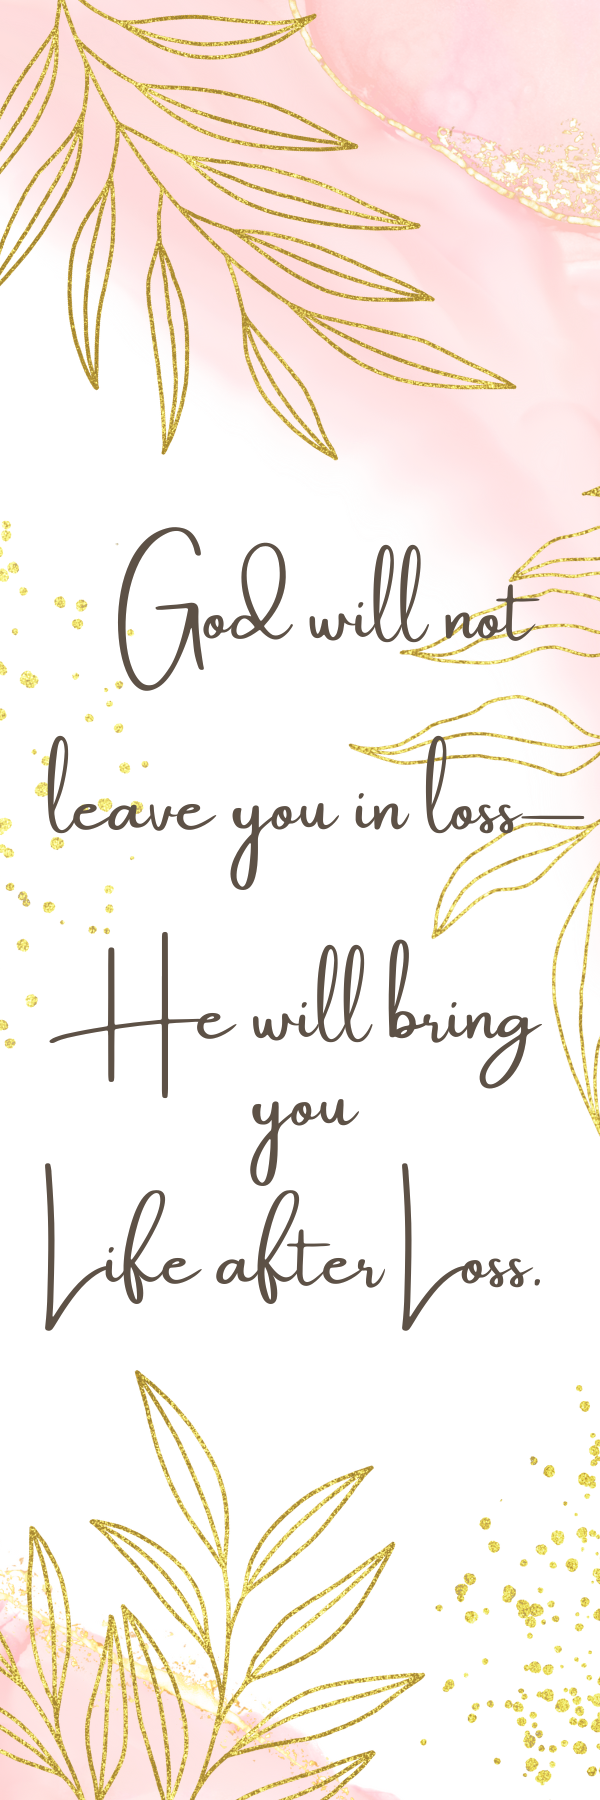 God will not
leave you in loss—
He will bring
you
Life after Loss.